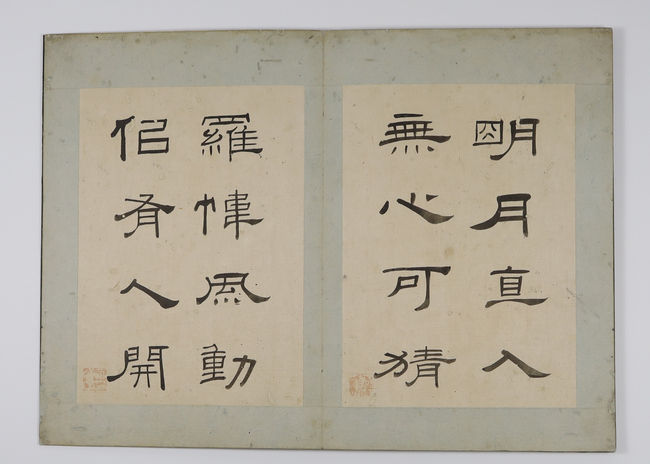 朙月直入
無心可猜
羅幃風動
佀有人開